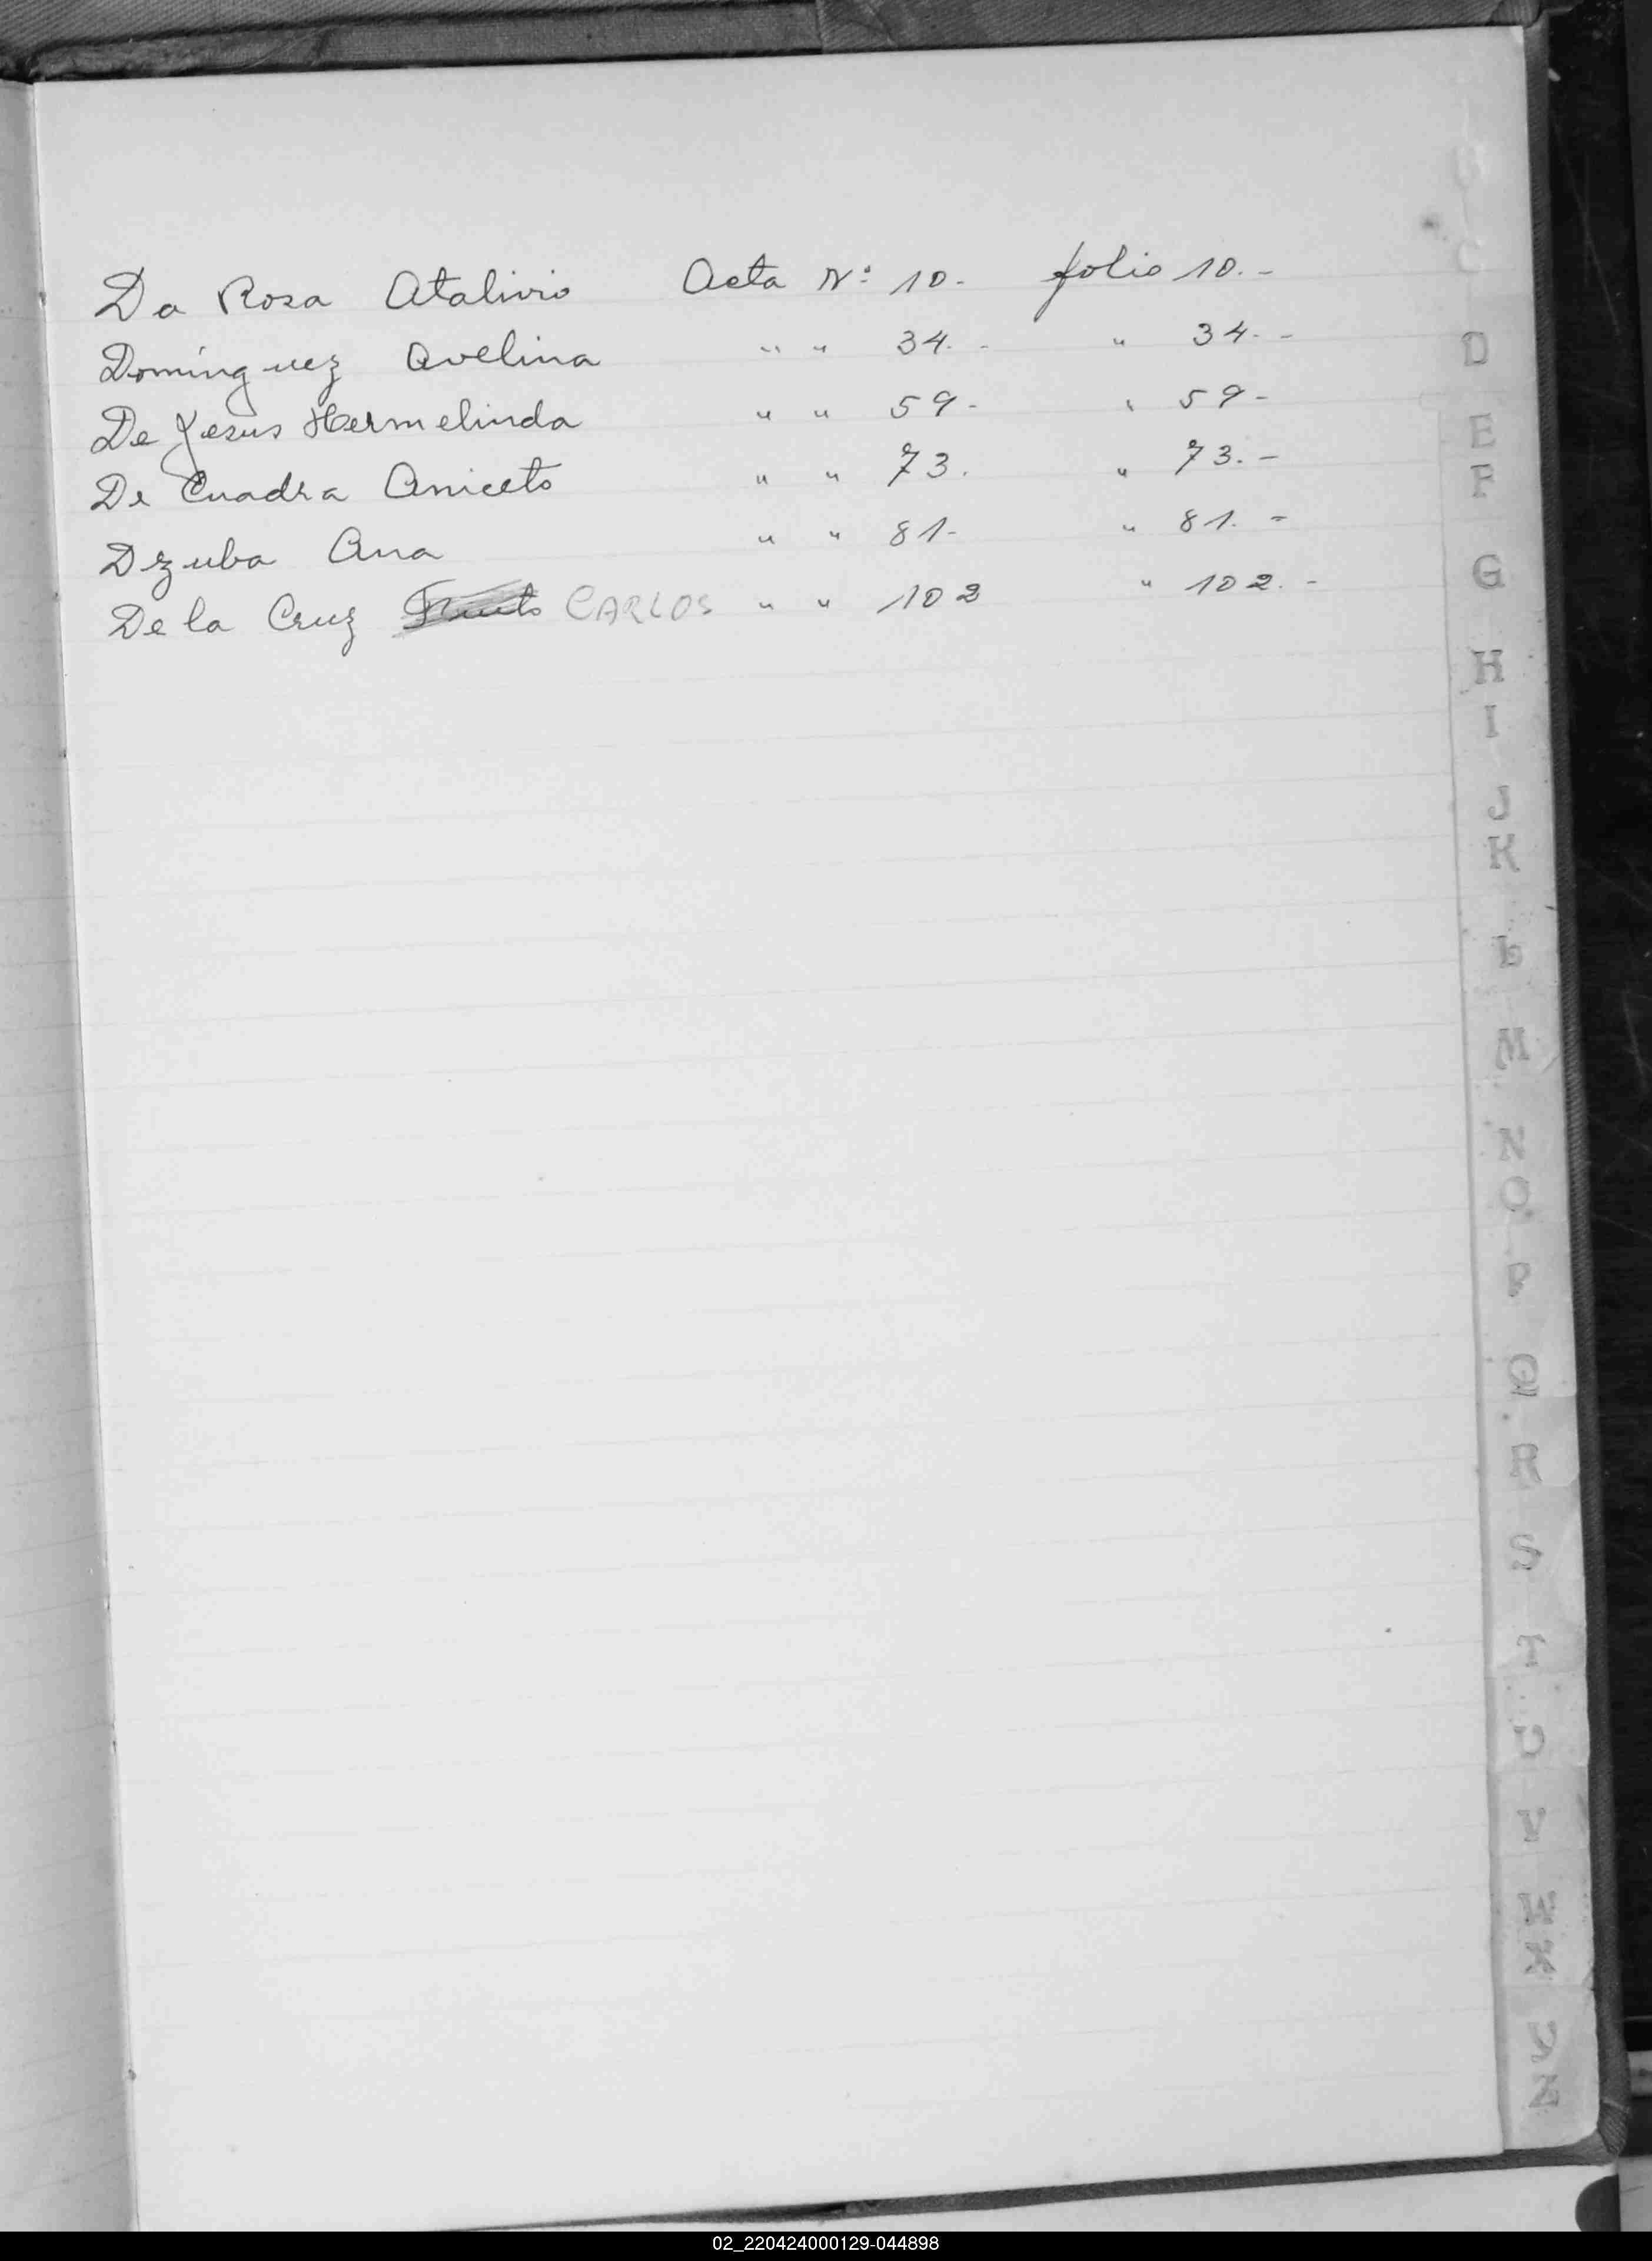 Da Rosa Atalivio Acta Nº 10.- folio 10.-
Dominguez Avelina " " 34.- " 34.-
De Jesus Hermelinda " " 59- " 59-
De Cuadra Aniceto " " 73. " 73.-
Dzuba Ana " " 81- " 81.-
De la Cruz CARLOS " " 102 " 102.-
D
E
F
G
H
I
J
K
L
M
N
O
P
Q
R
S
T
U
V
W
X
Y
Z
02_220424000129-044898